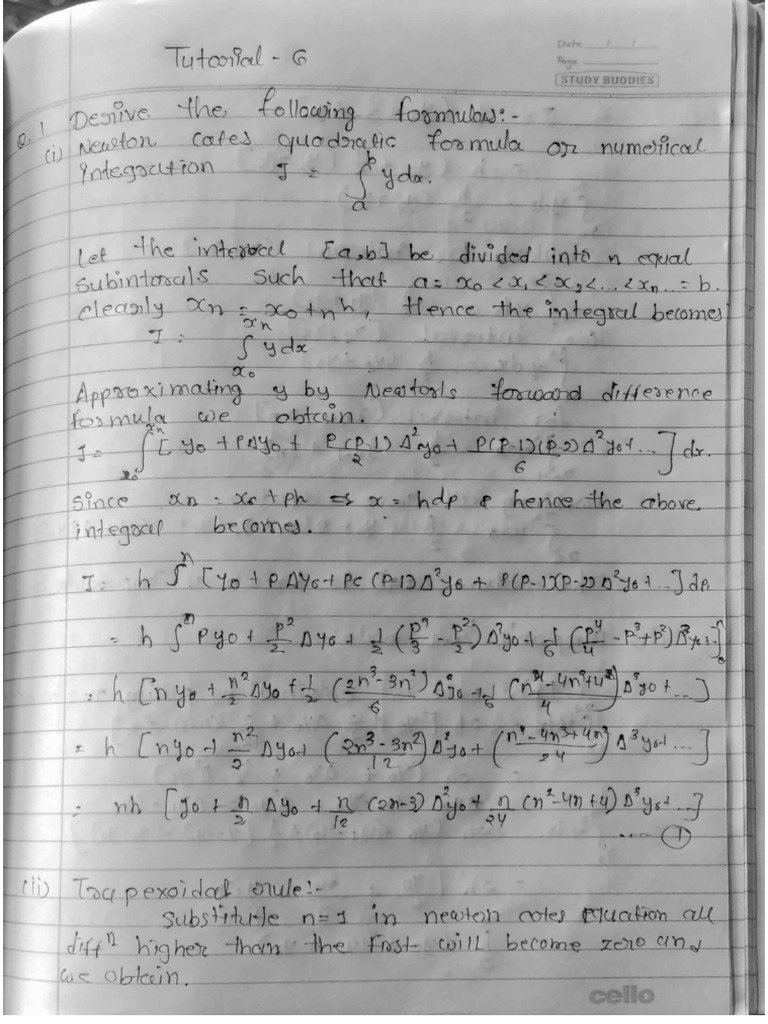 Tutorial - 6
Date / /
Page
STUDY BUDDIES
Q.1 Derive the following formulas:-
(i) Newton cotes quadratic formula or numerical
integration I = ∫_a^b y dx.
Let the interval [a,b] be divided into n equal
subintorals such that a = x₀ < x₁ < x₂ < ... < xₙ = b.
clearly xₙ = x₀ + nh, Hence the integral becomes
I = ∫_{x₀}^{xₙ} y dx
Approximating y by Newtons forward difference
formula we obtain.
I = ∫_{x₀}^{xₙ} [ y₀ + PΔy₀ + P(P-1)/2 Δ²y₀ + P(P-1)(P-2)/6 Δ²y₀ + ... ] dx.
Since xₙ = x₀ + ph ⇒ x = hdp & hence the above
integral becomes.
I = h ∫^n [y₀ + P Δy₀ + P (P-1) Δ²y₀ + P(P-1)(P-2) Δ²y₀ + ...] dp.
= h ∫^n Py₀ + P²/2 Δy₀ + 1/2 (P³/3 - P²/2) Δ²y₀ + 1/6 (P⁴/4 - P³ + P²) Δ³y₀ + ...]
= h [ny₀ + n²/2 Δy₀ + 1/2 (2n³-3n²)/6 Δ²y₀ + 1/6 (n⁴-4n³+4n²)/4 Δ³y₀ + ...]
= h [ny₀ + n²/2 Δy₀ + (2n³-3n²)/12 Δ²y₀ + (n⁴-4n³+4n²)/24 Δ³y₀ + ...]
= nh [y₀ + n/2 Δy₀ + n/12 (2n-3) Δ²y₀ + n/24 (n²-4n+4) Δ³y₀ + ...]
... ①
(ii) Trapexoidal rule:-
Substitute n=1 in newton cotes equation all
diffⁿ higher than the first will become zero and
we obtain.
cello